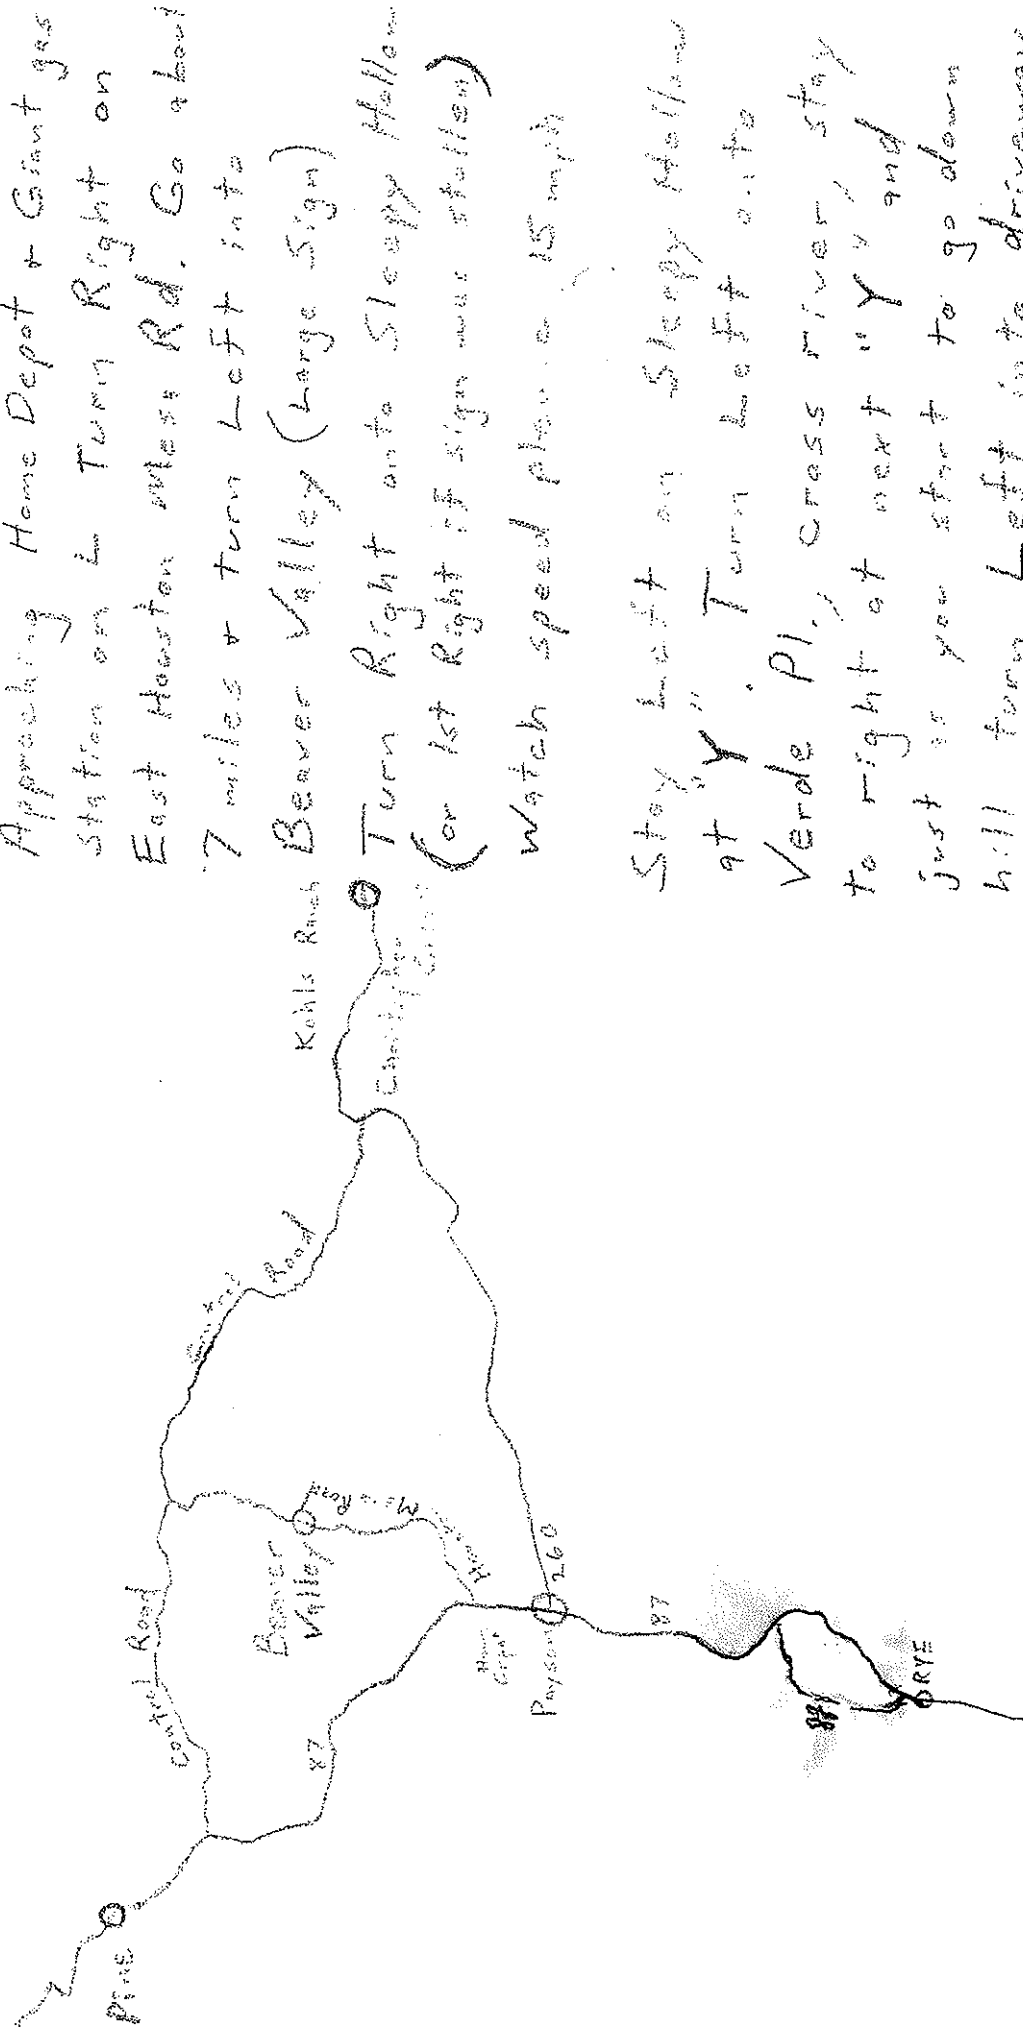 Approaching Home Depot + Giant gas
station on L Turn Right on
East Houston Mesa Rd. Go about
7 miles + turn Left into
Beaver Valley (Large Sign)
Turn Right onto Sleepy Hollow
(or 1st Right if sign was stollen)
Watch speed please 15 mph
Stay Left on Sleepy Hollow
at "Y". Turn Left onto
Verde Pl., cross river, stay
to right at next "Y" and
just as you start to go down
hill turn Left into driveway
Kohls Ranch
Christopher
Control Road
Control Road
Beaver
Valley
Houston Mesa Road
Home
Depot
Payson
260
87
87
Pine
RYE